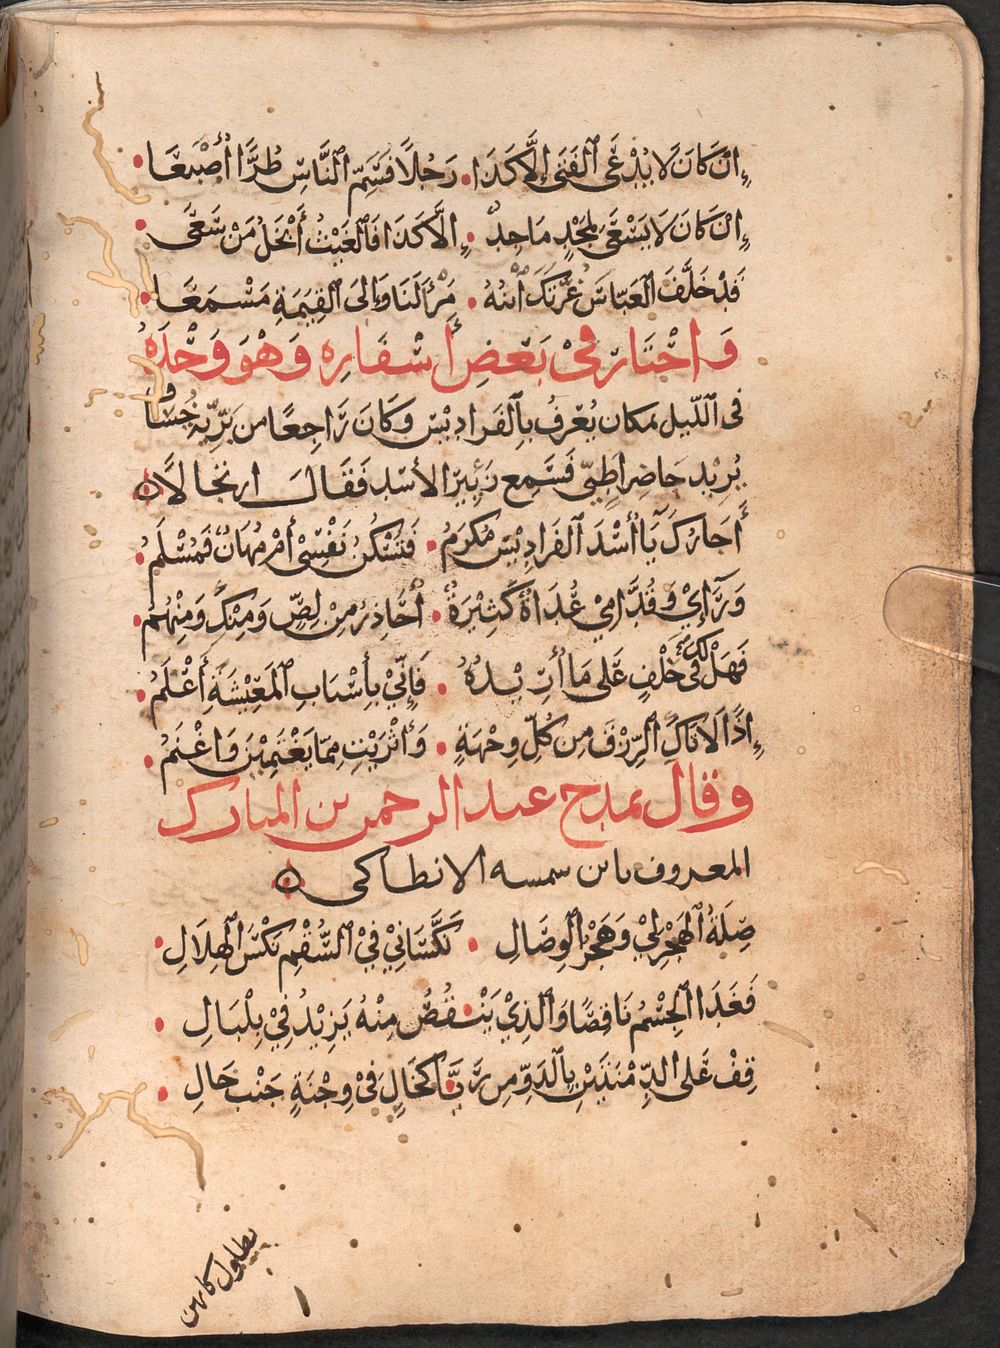 إِنْ كَانَ لَا يُدْعَى الْفَتَى إِلَّا كَذَا • رَجُلًا فَسَمِّ النَّاسَ طُرًّا أُصْبُعَا •
إِنْ كَانَ لَا يَسْعَى لِمَجْدٍ مَاجِدٌ • إِلَّا كَذَا فَالْغَيْثُ أَبْخَلُ مَنْ سَعَى •
قَدْ خَلَّفَ الْعَبَّاسُ غُرَّتَكَ ابْنَهُ • مَرْأًى لَنَا وَإِلَى الْقِيمَةِ مَسْمَعَا •
وَاجْتَازَ فِي بَعْضِ أَسْفَارِهِ وَهُوَ وَحْدَهُ
فى اللَّيل بمكان يُعْرفُ بِالفَرادِيسْ وَكَانَ رَاجِعًا من بَرِّيّة خُسَافٍ
يُرِيْد حَاضِرَ طَيِّى فَسَمِع زَئِيرَ الأَسَد فَقَالَ ارتجالًا
أَجَارُكَ يَا أُسْدَ الفَرادِيْسِ مُكْرَمُ • فَتَسْكُنُ نَفْسِى أَمْ مُهَانٌ فَمُسْلَمُ •
وَرَآءِيْ وَقُدَّامِيْ عُدَاةٌ كَثِيْرَةٌ • أُحَاذِرُ مِنْ لِصٍّ وَمِنْكِ وَمِنْهُمُ •
فَهَلْ لكِ فى حَلْفٍ عَلَى مَا أُرِيْدُهُ • فَإِنِّيْ بِأَسْبَابِ الْمَعِيْشَةِ أَعْلَمُ •
إِذًا لَأَتَاكِ الرِّزْقُ مِن كُلِّ وِجْهَةٍ • وَأَثْرَيْتِ مِمَّا يَغْنَمِيْنَ وَاغْنَمُ •
وقال يمدح عبد الرحمن بن المبارك
المعروف بابن سمسه الانطاكى
صِلَةُ الْهَجْرِ لِيْ وَهَجْرُ الْوِصَالِ • نَكَّسَانِيْ فِيْ السُّقْمِ نَكْسَ الْهِلَالِ •
فَغَدَا الْجِسْمُ نَاقِصًا وَالَّذِيْ يَنْقُصُ مِنْهُ يَزِيْدُ فِيْ بِلْبَالِ •
قِفْ عَلَى الدِّمْنَتَيْنِ بِالدَّوِّ مِن رَيَّا كَخَالٍ فِىْ وِجْنَةٍ جَنْبَ خَالِ •